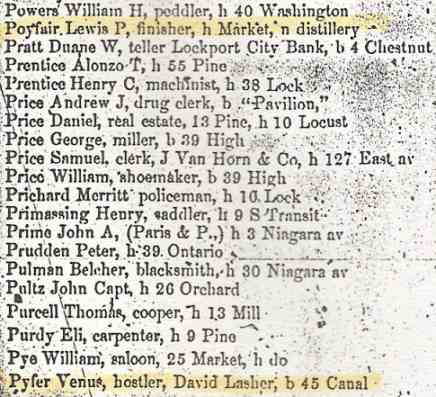 Powers William H, peddler, h 40 Washington
Poyfair Lewis P, finisher, h Market, n distillery
Pratt Duane W, teller Lockport City Bank, b 4 Chestnut
Prentice Alonzo T, h 55 Pine
Prentice Henry C, machinist, h 38 Lock
Price Andrew J, drug clerk, b "Pavilion,"
Price Daniel, real estate, 13 Pine, h 10 Locust
Price George, miller, b 39 High
Price Samuel, clerk, J Van Horn & Co, h 127 East av
Price William, shoemaker, b 39 High
Prichard Merritt policeman, h 16 Lock
Primassing Henry, saddler, h 9 S Transit
Prime John A, (Paris & P.,) h 3 Niagara av
Prudden Peter, h 39 Ontario
Pulman Belcher, blacksmith, h 30 Niagara av
Pultz John Capt, h 26 Orchard
Purcell Thomas, cooper, h 13 Mill
Purdy Eli, carpenter, h 9 Pine
Pye William, saloon, 25 Market, h do
Pyfer Venus, hostler, David Lasher, b 45 Canal